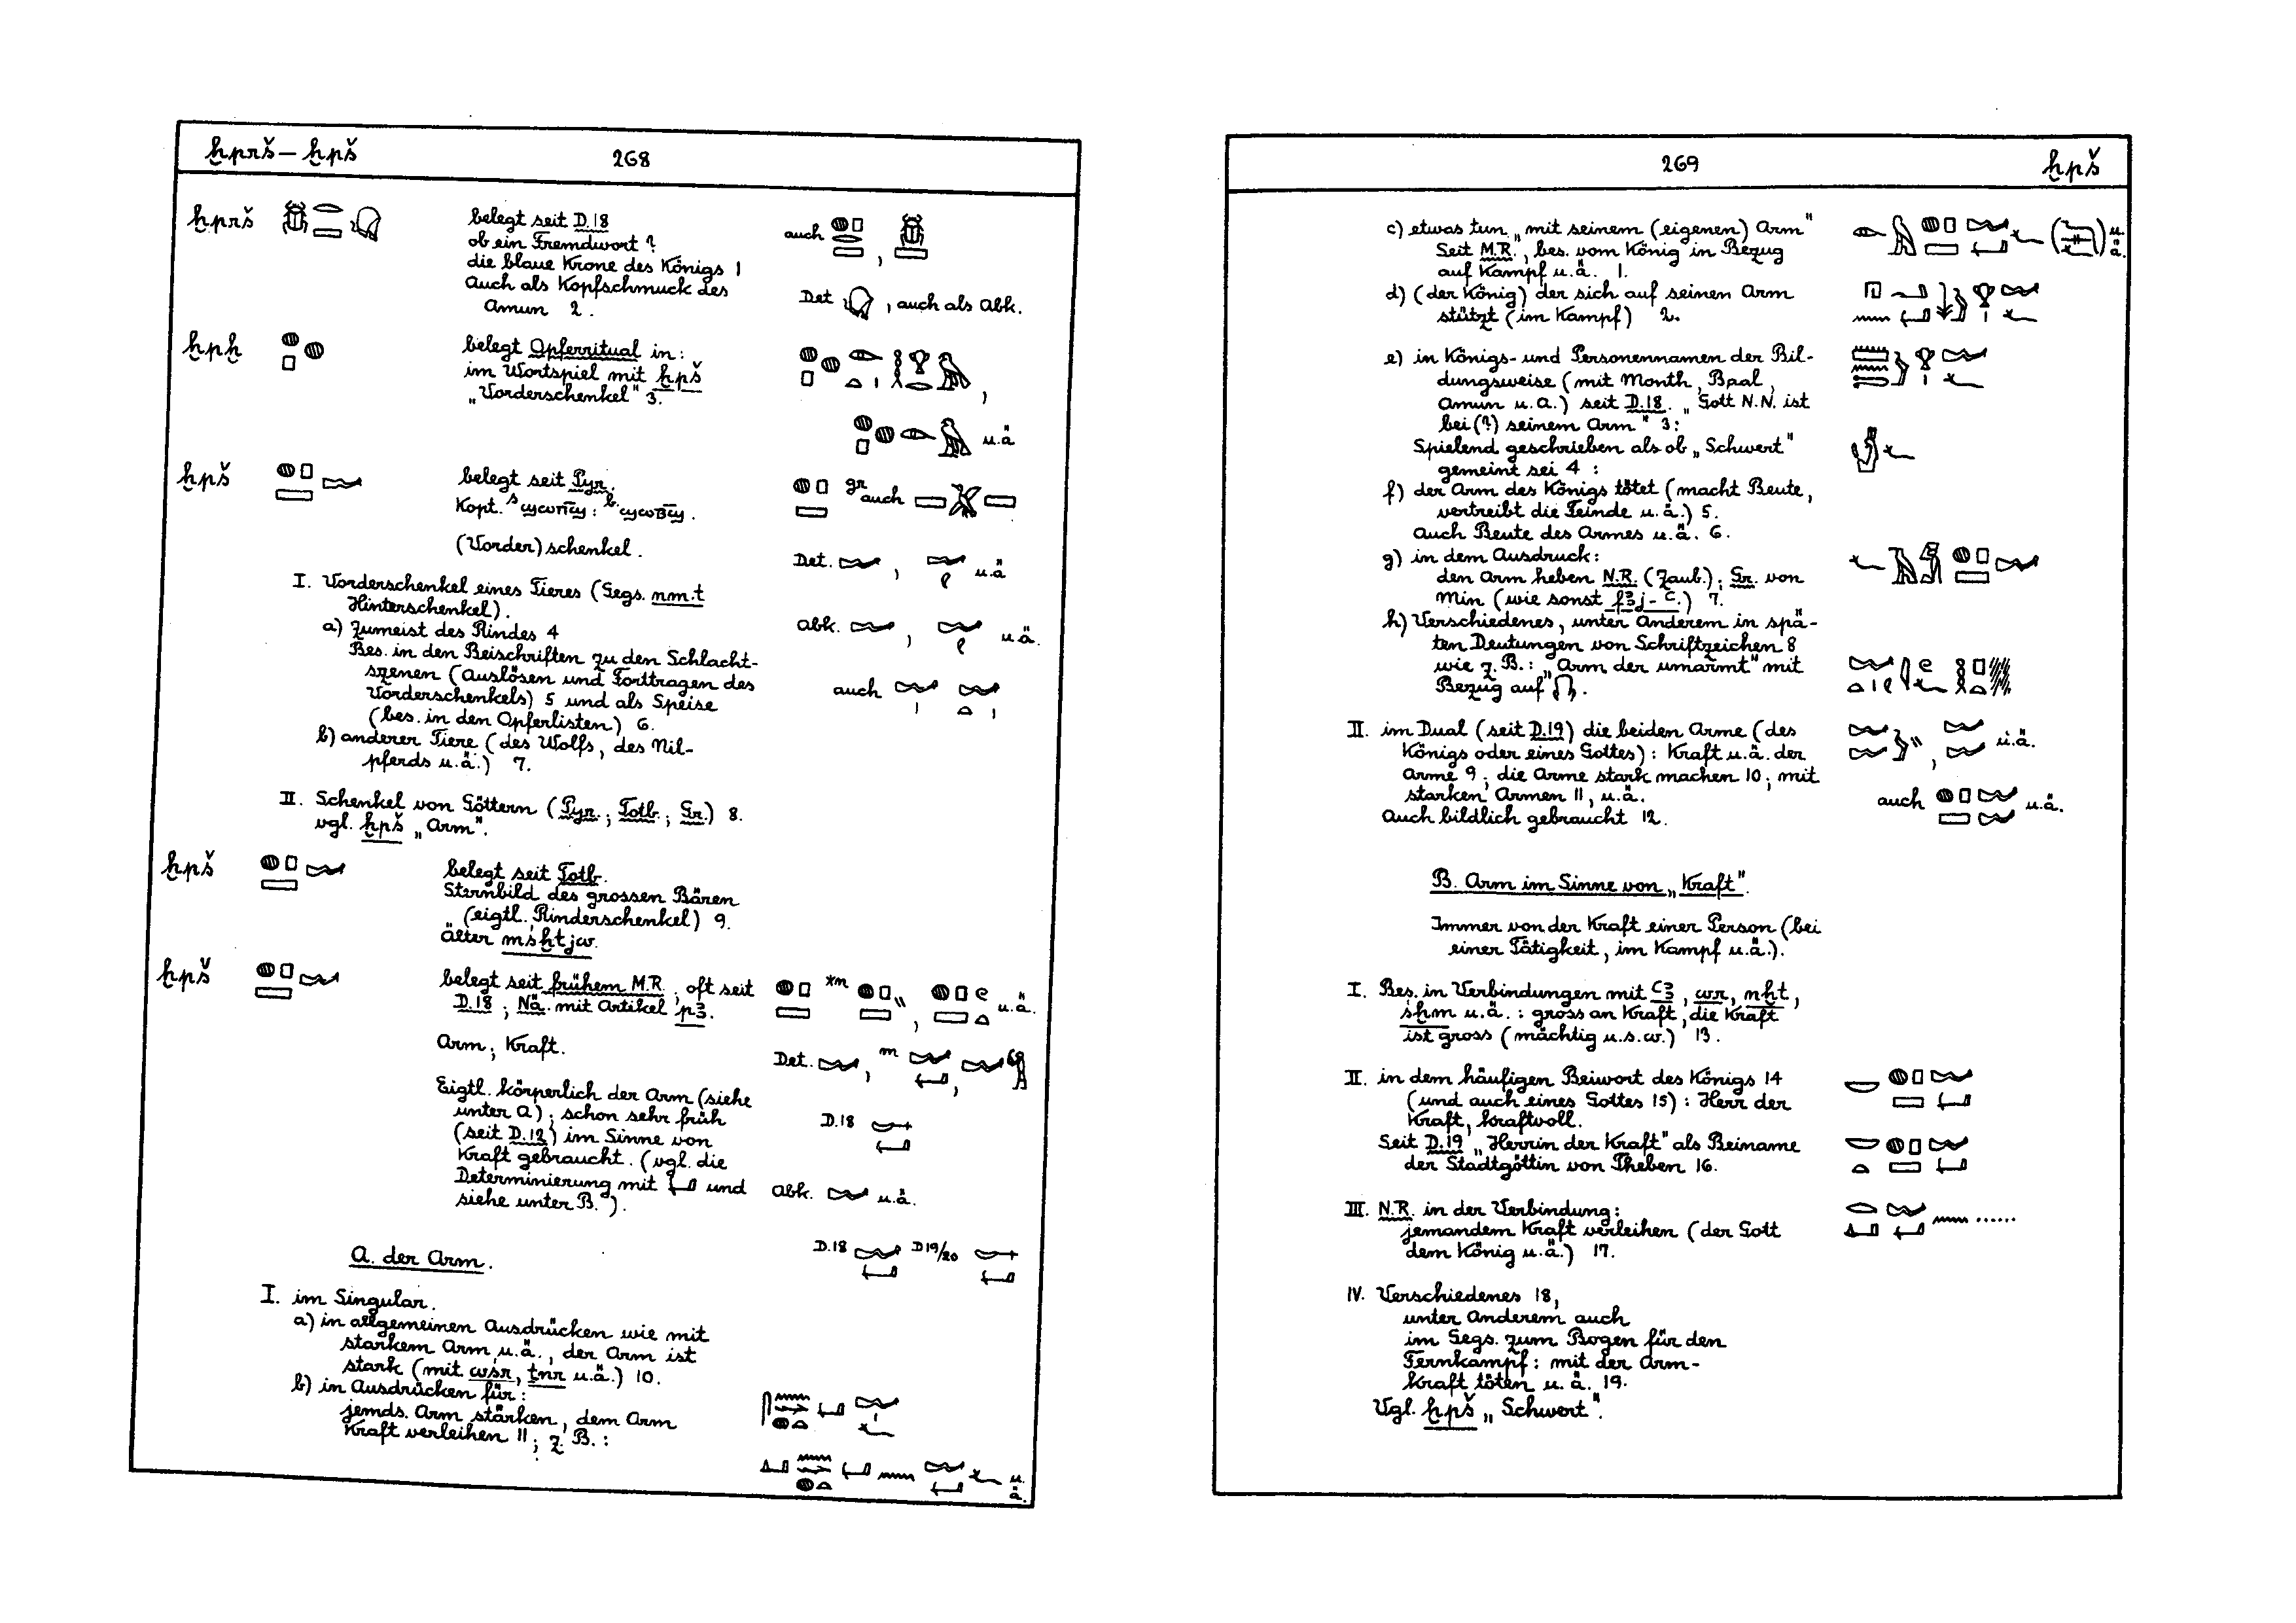 ḫprš — ḫpš
268
ḫprš
belegt seit D.18
ob ein Fremdwort?
die blaue Krone des Königs 1
Auch als Kopfschmuck des
Amun 2.
auch
Det , auch als Abk.
ḫpḫ
belegt Opferritual in:
im Wortspiel mit ḫpš
„Vorderschenkel" 3.
u.ä
ḫpš
belegt seit Pyr.
Kopt. s ϣⲱⲡϣ : b. ϣⲱⲃϣ.
(Vorder)schenkel.
gr auch
Det. , u.ä
I. Vorderschenkel eines Tieres (Gegs. nm.t
Hinterschenkel).
a) Zumeist des Rindes 4
Bes. in den Beischriften zu den Schlacht-
szenen (Auslösen und Forttragen des
Vorderschenkels) 5 und als Speise
(bes. in den Opferlisten) 6.
b) anderer Tiere (des Wolfs, des Nil-
pferds u.ä.) 7.
Abk. , u.ä.
auch
II. Schenkel von Göttern (Pyr.; Totb.; Gr.) 8.
vgl. ḫpš „Arm".
ḫpš
belegt seit Totb.
Sternbild des grossen Bären
(eigtl. Rinderschenkel) 9.
älter mśḫtjw.
ḫpš
belegt seit frühem M.R., oft seit
D.18; Nä. mit Artikel pꜣ.
*m , u.ä.
Arm; Kraft.
Det. , m ,
Eigtl. körperlich der Arm (siehe
unter A); schon sehr früh
(seit D.12) im Sinne von
Kraft gebraucht. (vgl. die
Determinierung mit und
siehe unter B.).
D.18
Abk. u.ä.
A. der Arm.
D.18 D19/20
I. im Singular.
a) in allgemeinen Ausdrücken wie mit
starkem Arm u.ä., der Arm ist
stark (mit wśr, tnr u.ä.) 10.
b) in Ausdrücken für:
jemds. Arm stärken, dem Arm
Kraft verleihen 11; z. B.:
u.ä.
269
ḫpš
c) etwas tun „mit seinem (eigenen) Arm"
Seit M.R., bes. vom König in Bezug
auf Kampf u.ä. 1.
u.ä.
d) (der König) der sich auf seinen Arm
stützt (im Kampf) 2.
e) in Königs- und Personennamen der Bil-
dungsweise (mit Month, Baal,
Amun u.a.) seit D.18. „Gott N.N. ist
bei(?) seinem Arm" 3:
Spielend geschrieben als ob „Schwert"
gemeint sei 4:
f) der Arm des Königs tötet (macht Beute,
vertreibt die Feinde u.ä.) 5.
auch Beute des Armes u.ä. 6.
g) in dem Ausdruck:
den Arm heben N.R. (Zaub.); Gr. von
Min (wie sonst fꜣj-ꜥ.) 7.
h) Verschiedenes, unter Anderem in spä-
ten Deutungen von Schriftzeichen 8
wie z. B.: „Arm der umarmt" mit
Bezug auf .
II. im Dual (seit D.19) die beiden Arme (des
Königs oder eines Gottes): Kraft u.ä. der
Arme 9; die Arme stark machen 10; mit
starken Armen 11, u.ä.
Auch bildlich gebraucht 12.
, u.ä.
auch u.ä.
B. Arm im Sinne von „Kraft".
Immer von der Kraft einer Person (bei
einer Tätigkeit, im Kampf u.ä.).
I. Bes. in Verbindungen mit ꜥꜣ, wr, nḫt,
śḫm u.ä.: gross an Kraft, die Kraft
ist gross (mächtig u.s.w.) 13.
II. in dem häufigen Beiwort des Königs 14
(und auch eines Gottes 15): Herr der
Kraft, kraftvoll.
Seit D.19 „Herrin der Kraft" als Beiname
der Stadtgöttin von Theben 16.
III. N.R. in der Verbindung:
jemandem Kraft verleihen (der Gott
dem König u.ä.) 17.
IV. Verschiedenes 18,
unter Anderem auch
im Gegs. zum Bogen für den
Fernkampf: mit der Arm-
kraft töten u.ä. 19.
Vgl. ḫpš „Schwert".